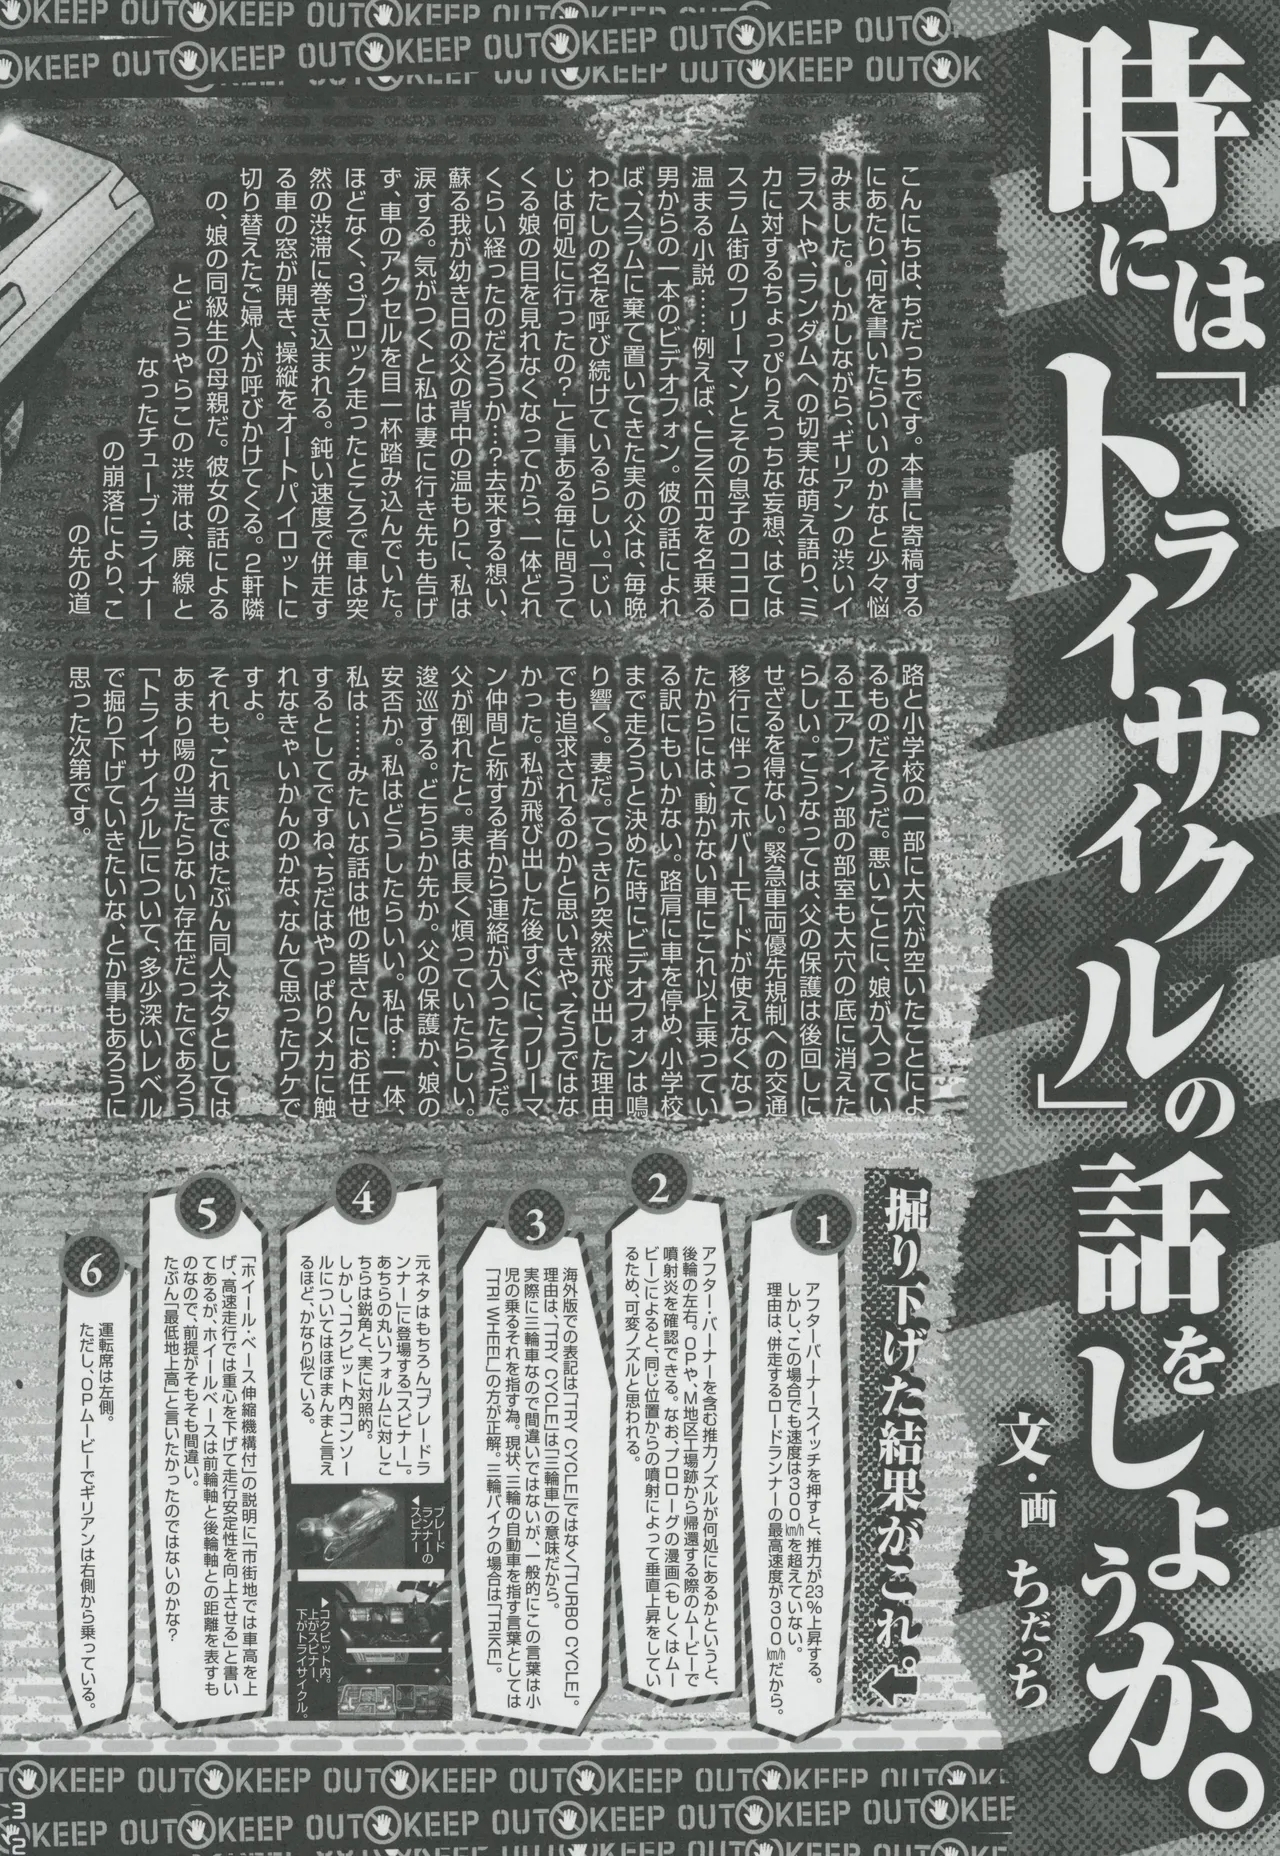 時には「トライサイクル」の話をしようか。
文・画 ちだっち
こんにちは、ちだっちです。本書に寄稿する
にあたり、何を書いたらいいのかなと少々悩
みました。しかしながら、ギリアンの渋いイ
ラストや、ランダムへの切実な萌え語り、ミ
カに対するちょっぴりえっちな妄想、はては
スラム街のフリーマンとその息子のココロ
温まる小説……例えば、JUNKERを名乗る
男からの一本のビデオフォン。彼の話によれ
ば、スラムに棄て置いてきた実の父は、毎晩
わたしの名を呼び続けているらしい。「じい
じは何処に行ったの?」と事ある毎に問うて
くる娘の目を見れなくなってから、一体どれ
くらい経ったのだろうか…?去来する想い、
蘇る我が幼き日の父の背中の温もりに、私は
涙する。気がつくと私は妻に行き先も告げ
ず、車のアクセルを目一杯踏み込んでいた。
ほどなく、3ブロック走ったところで車は突
然の渋滞に巻き込まれる。鈍い速度で併走す
る車の窓が開き、操縦をオートパイロットに
切り替えたご婦人が呼びかけてくる。2軒隣
の、娘の同級生の母親だ。彼女の話による
とどうやらこの渋滞は、廃線と
なったチューブ・ライナー
の崩落により、こ
の先の道
路と小学校の一部に大穴が空いたことによ
るものだそうだ。悪いことに、娘が入ってい
るエアフィン部の部室も大穴の底に消えた
らしい。こうなっては、父の保護は後回しに
せざるを得ない。緊急車両優先規制への交通
移行に伴ってホバーモードが使えなくなっ
たからには、動かない車にこれ以上乗ってい
る訳にもいかない。路肩に車を停め、小学校
まで走ろうと決めた時にビデオフォンは鳴
り響く。妻だ。てっきり突然飛び出した理由
でも追求されるのかと思いきや、そうではな
かった。私が飛び出した後すぐに、フリーマ
ン仲間と称する者から連絡が入ったそうだ。
父が倒れたと。実は長く煩っていたらしい。
逡巡する。どちらか先か。父の保護か、娘の
安否か。私はどうしたらいい。私は…一体、
私は……みたいな話は他の皆さんにお任せ
するとしてですね、ちだはやっぱりメカに触
れなきゃいかんのかな、なんて思ったワケで
すよ。
それも、これまではたぶん同人ネタとしては
あまり陽の当たらない存在だったであろう
「トライサイクル」について、多少深いレベル
で掘り下げていきたいな、とか事もあろうに
思った次第です。
掘り下げた結果がこれ。↓
1
アフターバーナースイッチを押すと、推力が23%上昇する。
しかし、この場合でも速度は300㎞/hを超えていない。
理由は、併走するロードランナーの最高速度が300㎞/hだから。
2
アフター・バーナーを含む推力ノズルが何処にあるかというと、
後輪の左右。OPや、M地区工場跡から帰還する際のムービーで
噴射炎を確認できる。なお、プロローグの漫画(もしくはムー
ビー)によると、同じ位置からの噴射によって垂直上昇をしてい
るため、可変ノズルと思われる。
3
海外版での表記は「TRY CYCLE」ではなく「TURBO CYCLE」。
理由は、「TRY CYCLE」は「三輪車」の意味だから。
実際に三輪車なので間違いではないが、一般的にこの言葉は小
児の乗るそれを指す為。現状、三輪の自動車を指す言葉としては
「TRI WHEEL」の方が正解。三輪バイクの場合は「TRIKE」。
4
元ネタはもちろん「ブレードラ
ンナー」に登場する「スピナー」。
あちらの丸いフォルムに対しこ
ちらは鋭角と、実に対照的。
しかし、コクピット内コンソー
ルについてはほぼまんまと言え
るほど、かなり似ている。
◀ブレード
ランナーの
スピナー
▶コクピット内。
上がスピナー、
下がトライサイクル。
5
「ホイール・ベース伸縮機構付」の説明に「市街地では車高を上
げ、高速走行では重心を下げて走行安定性を向上させる」と書い
てあるが、ホイールベースは前輪軸と後輪軸との距離を表すも
のなので、前提がそもそも間違い。
たぶん「最低地上高」と言いたかったのではないのかな?
6
運転席は左側。
ただし、OPムービーでギリアンは右側から乗っている。
KEEP OUT KEEP OUT KEEP OUT KEEP OUT
KEEP OUT KEEP OUT KEEP OUT KEEP OUT